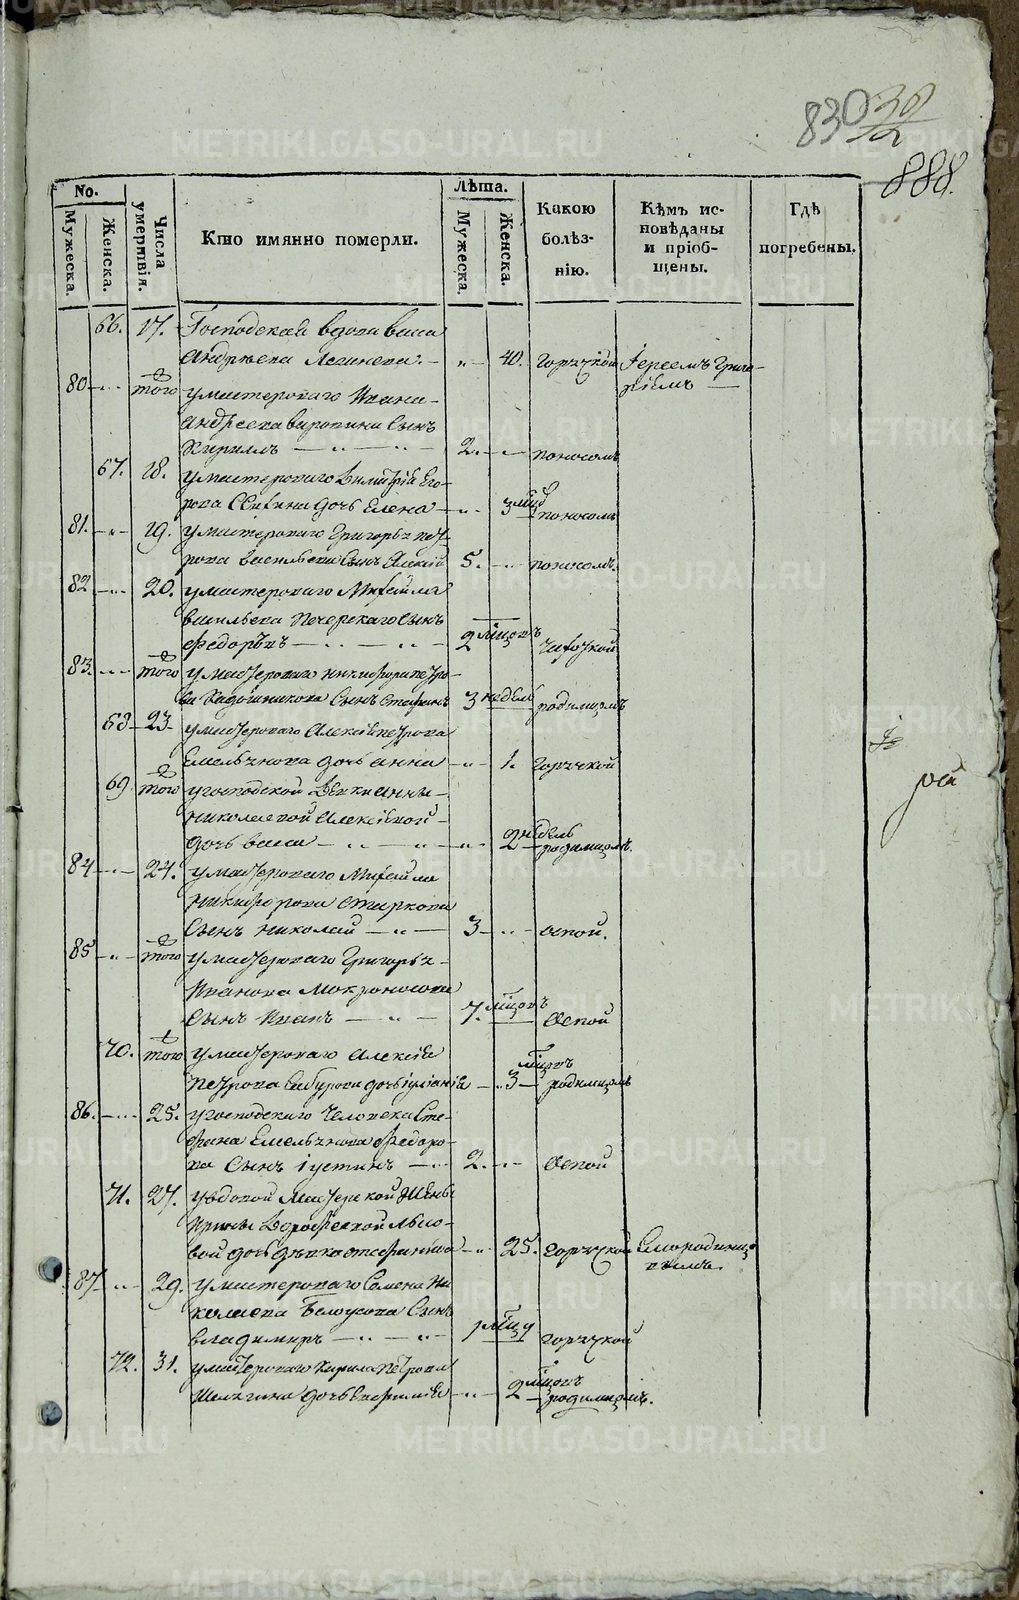 830 38/2
888.
No.
Мужеска.
Женска.
Числа умертвія.
Кто имянно померли.
Лѣта.
Мужеска.
Женска.
Какою болѣзнію.
Кѣмъ исповѣданы и пріобщены.
Гдѣ погребены.
66. 17. Господская
Андрѣева 40. горячкой Іереемъ Григо-
80 того у мастероваго Ивана ріемъ
Андреева сынъ
Кириллъ 2. поносомъ
67. 18. у мастероваго Димитрія Его-
рова дочь Елена 3 мцъ поносомъ
81. 19. у мастероваго Григорья Пет-
рова Васильева сынъ Алексѣй 5. поносомъ.
82 20. у мастероваго Михайла
Васильева Печерскаго сынъ
Федоръ 2 мцовъ чахоткой
83. того у мастероваго Никифора Петро-
ва сынъ Стефанъ 3 недель родимцомъ
68 23 у мастероваго Алексѣя Петрова
Емельянова дочь Анна 1. горячкой
69 того у господской дѣвки Анны
Николаевой Алексѣевой
дочь 2 недѣль родимцомъ.
84 24. у мастероваго Михайла
Никифорова Старкова
сынъ Николай 3 оспой.
85 того у мастероваго Григорья
Иванова Мокроносова
сынъ Иванъ 7. мцовъ оспой
70. того у мастероваго Алексѣя
Петрова дочь Іуліанія 3 мцовъ родимцомъ
86. 25. у господскаго человека Сте-
фана Емельянова Федоро-
ва сынъ Іустинъ 2. оспой
71. 27. у вдовой мастерской жены
Ирины Дорофеевой
вой дочь дѣвка Стефанида 25. горячкой
87 29. у мастероваго Семена Ни-
колаева Белоусова сынъ
Владимиръ 1 мцу горячкой
72. 31. у мастероваго Кирила Петрова
Шелягина дочь Евфимія 2 мцовъ родимцомъ.
METRIKI.GASO-URAL.RU